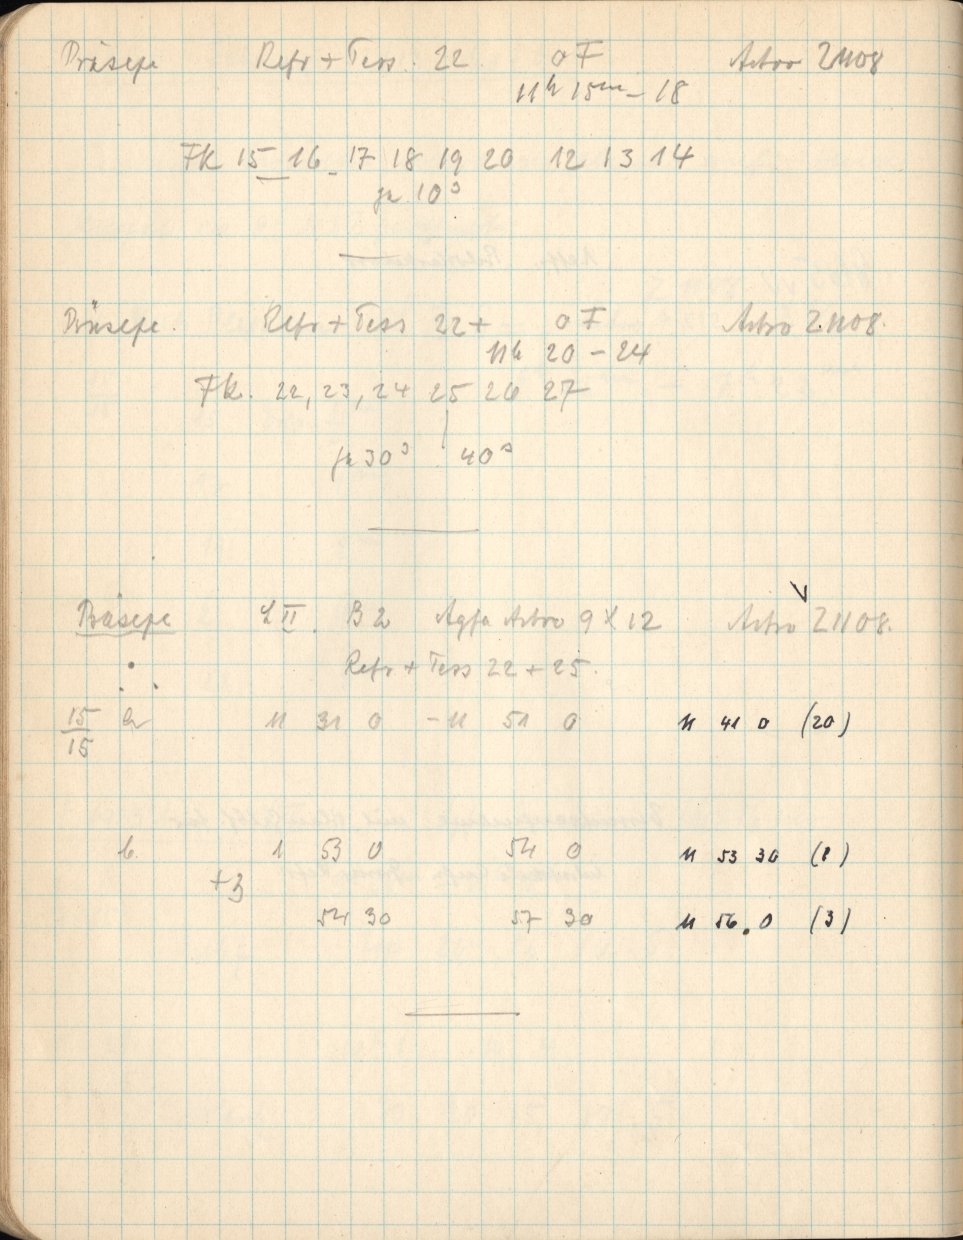 Präsepe Refr + Tess. 22 o F Astro Z1108
11h 15m – 18
FK 15 16 17 18 19 20 12 13 14
je 10s
Präsepe. Refr + Tess 22+ o F Astro Z1108.
11h 20 – 24
FK. 22, 23, 24 25 26 27
je 30s 40s
Präsepe L II. B 2 Agfa Astro 9 X 12 Astro Z1108.
Refr + Tess 22 + 25.
15/15 a 11 31 0 – 11 51 0 11 41 0 (20)
b. 1 53 0 54 0 11 53 30 (1)
+3
54 30 57 30 11 56.0 (3)